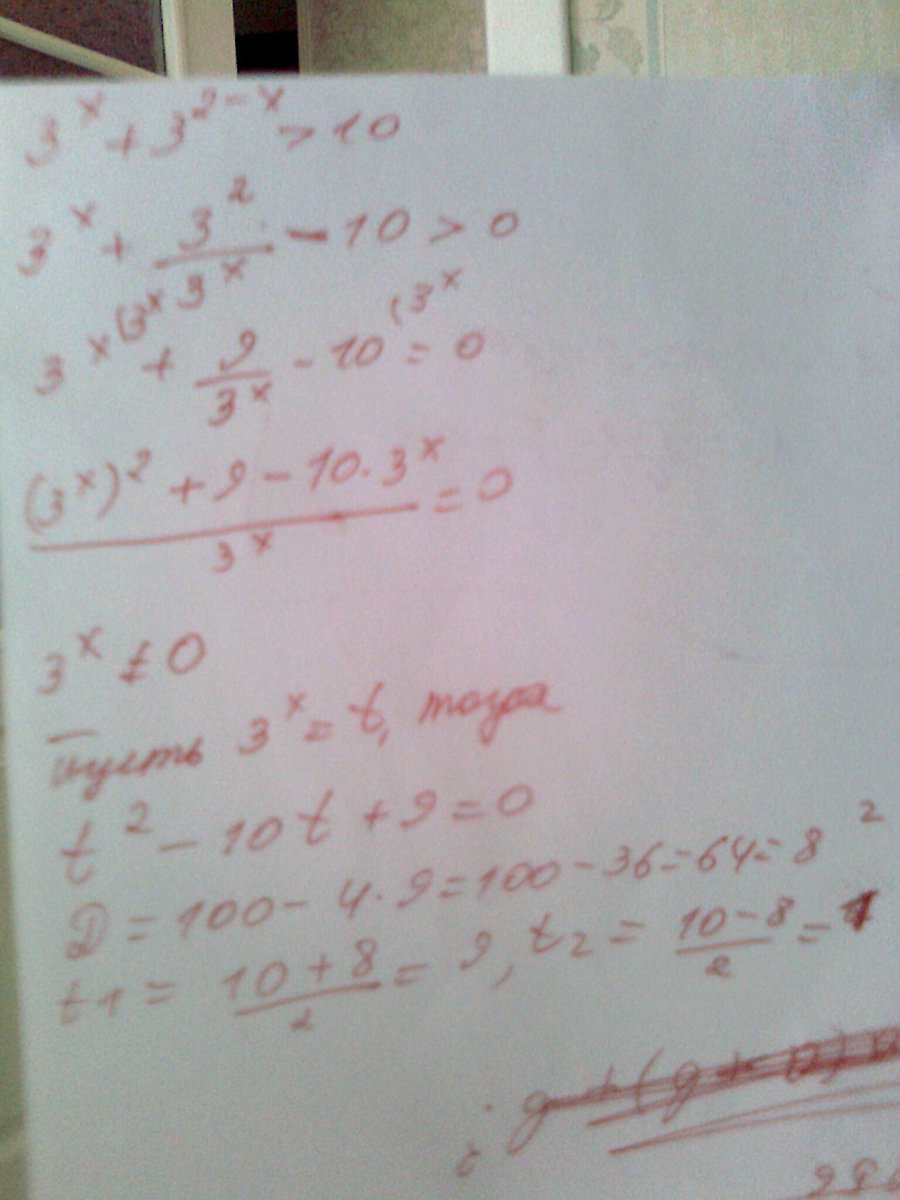 3^x + 3^(2-x) > 10
3^x + 3^2/3^x - 10 > 0
3^x (3^x + 9/3^x - 10 (3^x = 0
((3^x)^2 + 9 - 10·3^x)/3^x = 0
3^x ≠ 0
Пусть 3^x = t, тогда
t^2 - 10t + 9 = 0
D = 100 - 4·9 = 100 - 36 = 64 = 8^2
t1 = (10+8)/2 = 9, t2 = (10-8)/2 = 1